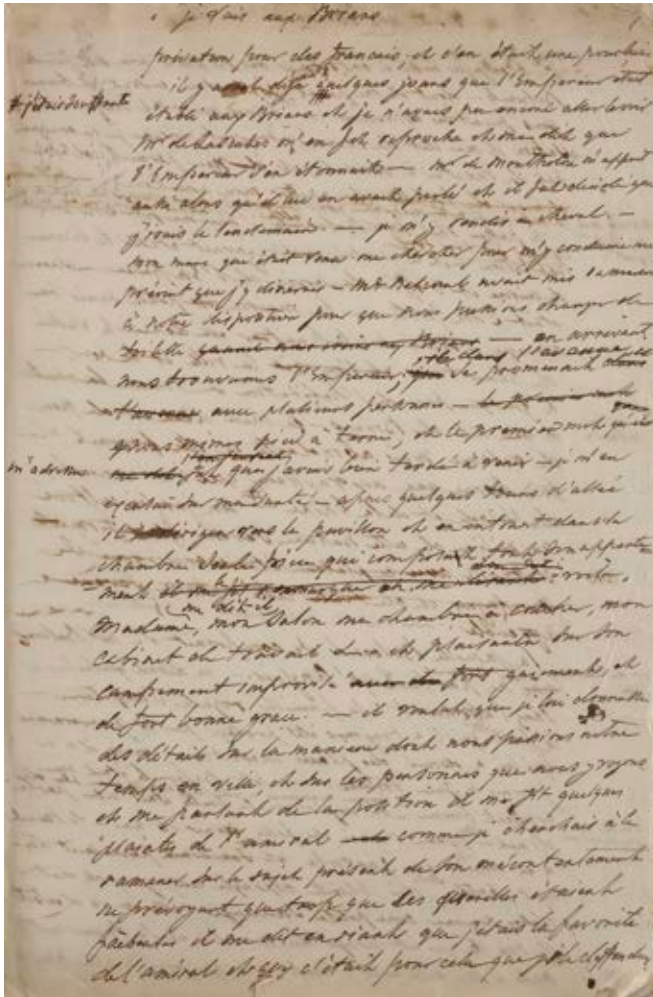 je vais aux Briars
privation pour des français, et c'en était une pour lui
il y avait déjà quelques jours que l'Empereur était
établi aux Briars et je n'avais pu encore aller le voir
Mr de Lascases m'en fit reproche et me dit que
l'Empereur s'en étonnait — Mr de Montholon m'apprit
aussi alors qu'il lui en avait parlé et il fut décidé que
j'irais le lendemain. — je m'y rendis à cheval. —
mon mari qui était venu me chercher pour m'y conduire me
prévint que j'y dinerais — Mr Balcomb avait mis sa maison
à notre disposition pour que nous pussions changer de
toilette — en arrivant
nous trouvames l'Empereur, se promenait dans l'avenue
avec plusieurs personnes —
nous mimes pied à terre, et le premier mot qu'il
m'adressa
fut que j'avais bien tardé à venir — je m'en
excusai sur ma santé — après quelques tours d'allée
il dirigea vers le pavillon et en entrant dans la
chambre seule pièce qui composait tout son apparte
ment voilà,
me dit-il
Madame, mon salon ma chambre à coucher, mon
cabinet de travail et plaisanta sur son
campement improvisé fort gaiement, et
de fort bonne grace. — il voulut que je lui donnasse
des détails sur la manière dont nous passions notre
temps en ville, et sur les personnes que nous voyions
et me parlant de la position il me fit quelques
plaintes de l'amiral — comme je cherchais à le
ramener sur le sujet présent de son mécontentement
ne prévoyant que trop que ses querelles étaient
facheuses il me dit en riant que j'étais la favorite
de l'amiral et que c'était pour cela que je le deffendais